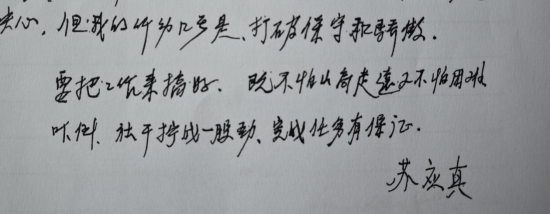 心，但我的是，打破保守和骄傲．
要把工作来搞好．既不怕山高走遠又不怕困难
吓倒．干拧成一股劲、完成任务有保证．
苏应真